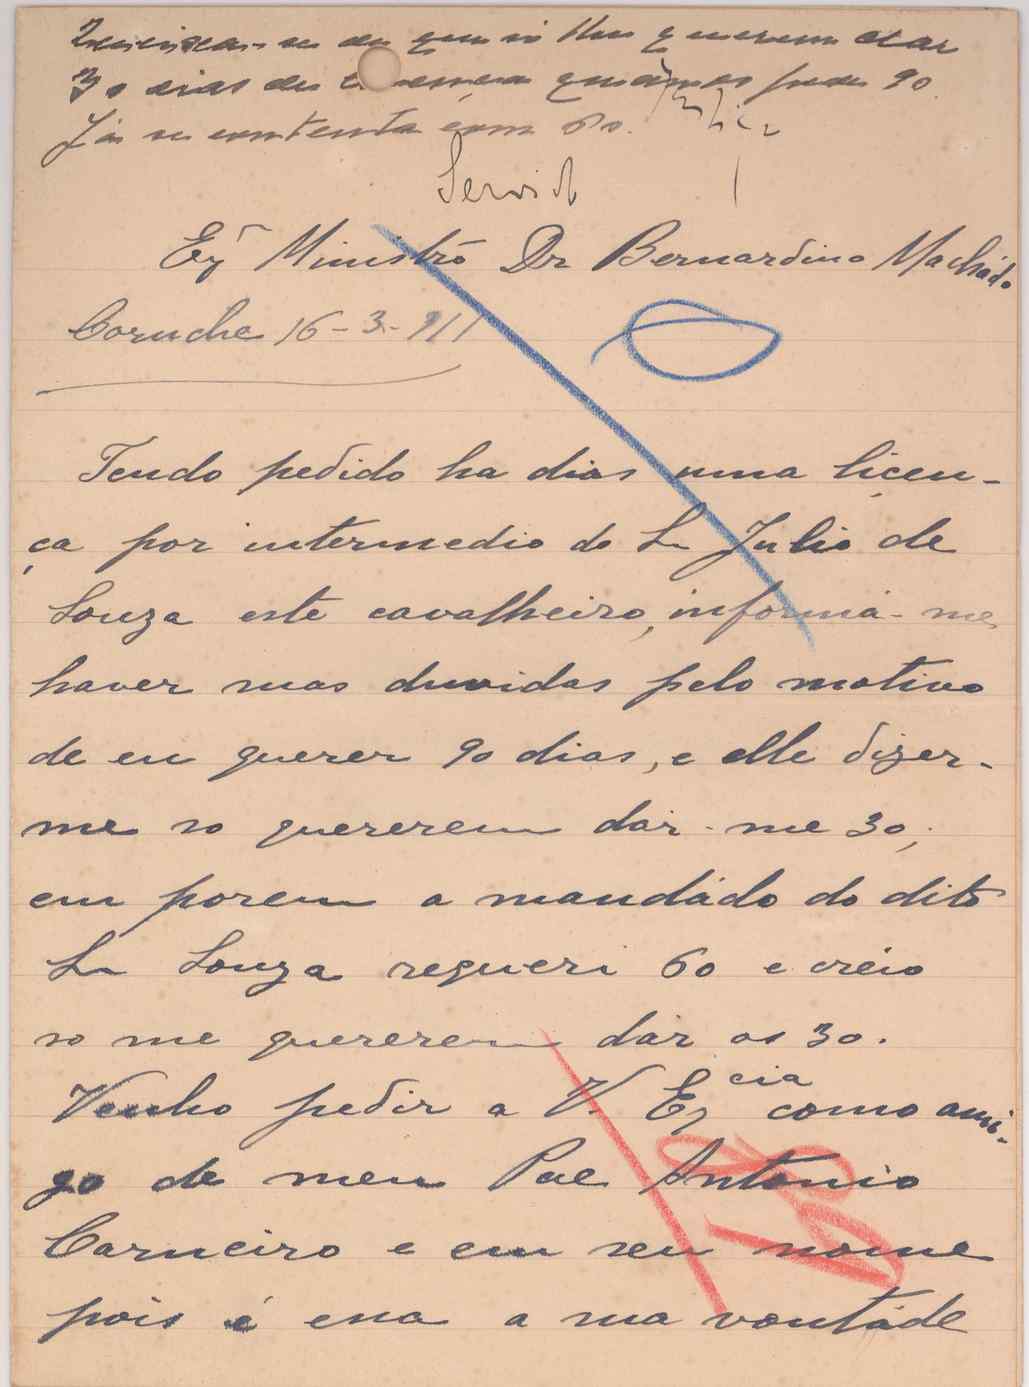 Queixa-se de que só lhe querem dar
30 dias de licença quando pede 90.
Já se contenta com 60.
Servid
Exº Ministro Dr Bernardino Machado
Coruche 16-3-911
Tendo pedido ha dias uma licen-
ça por intermedio do Sr Julio de
Souza este cavalheiro, informa-me
haver mas duvidas pelo motivo
de eu querer 90 dias, e elle dizer-
me so quererem dar-me 30,
eu porem a mandado do dito
Sr Souza requeri 60 e creio
so me quererem dar os 30.
Venho pedir a V. Excia como ami-
go de meu Pae Antonio
Carneiro e em seu nome
pois é essa a sua vontade